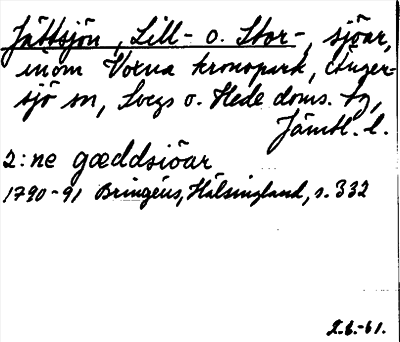 Jättsjön, Lill- o. Stor-, sjöar,
inom Voxna kronopark, Ånger-
sjö sn, Svegs o. Hede doms. tg,
Jämtl. l.
2:ne gæddsiöar
1790-91 Bringéus, Hälsingland, s. 332
2.6.-61.